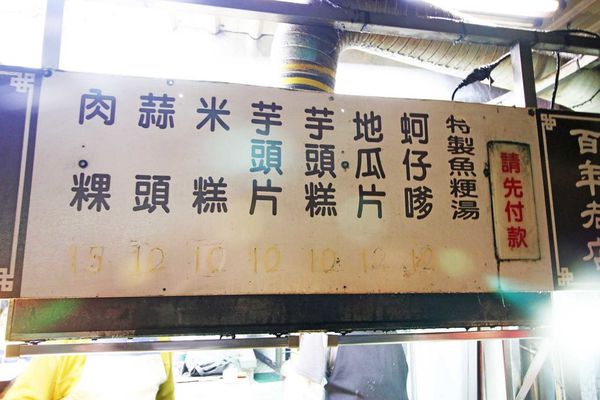 百年老店
請先付款
特製魚粳湯
蚵仔嗲
地瓜片
芋頭糕
芋頭片
米糕
蒜頭
肉粿 15